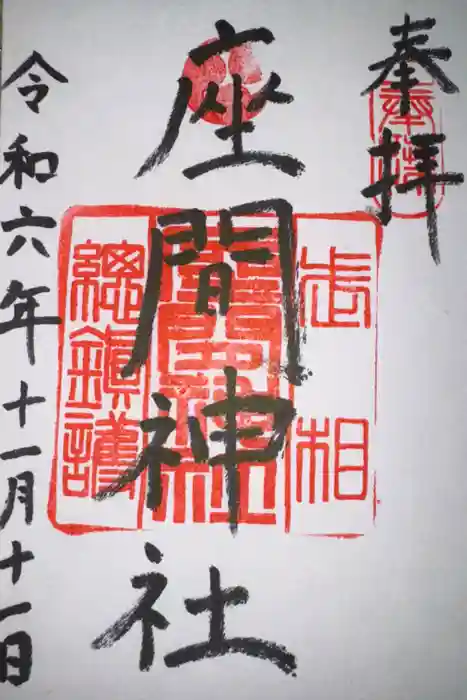 奉拝
座間神社
令和六年十一月十一日
武相
座間神社
總鎭護